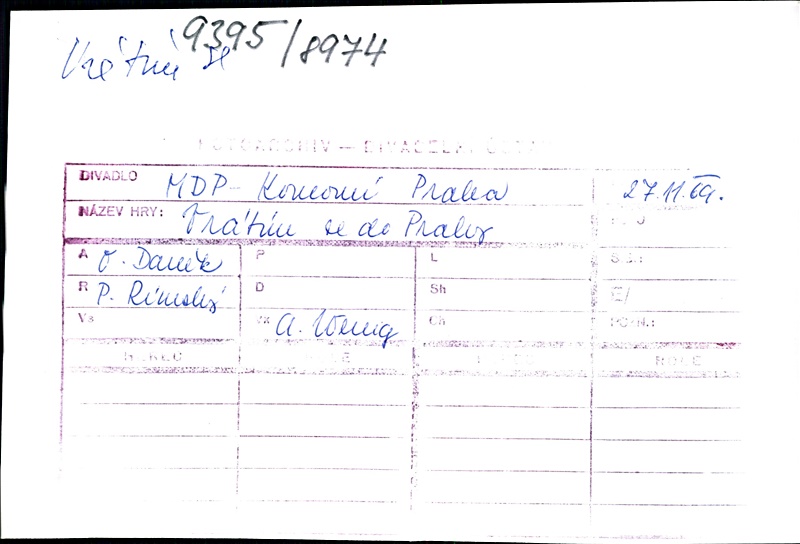 9395/8974
Vrátím se
FOTOARCHIV — DIVADELNÍ ÚSTAV
DIVADLO MDP - Komorní Praha 27.11.69.
NÁZEV HRY: Vrátím se do Prahy
A O. Daněk P L
R P. Rímský D Sh E/
Vs Vk A. Wenig Ch
HEREC ROLE HEREC ROLE